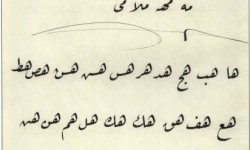 مه مهد ملا می
ها هب هج هد هر هس هس هس هص هط
هع هف هق هک هك هل هم هن هه